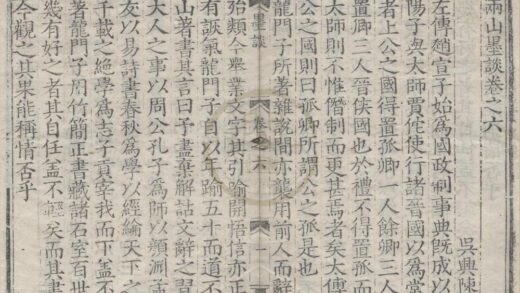 兩山墨談卷之六
吳興陳
左傳趙宣子始爲國政制事典既成以
陽子與太師賈佗使行諸晉國以爲常
者上公之國得置孤卿一人餘卿三人
置卿三人晉侯國也於禮不得置孤而
太師則不惟僭制而更甚焉者矣太傅
公之國則曰孤卿所謂公之孤是也
龍門子所著雜說間亦襲用前人而辭
墨談
卷之六
一
殆類今舉業文字其引喻開悟信亦正
有詼氣龍門子自以年踰五十而道不
山著書其言曰予盡棄解詁文辭之習
大人之事以周公孔子爲師以顏淵孟
友以易詩書春秋爲學以經綸天下之
千載之絕學爲志子貢宰我而下蓋不
著龍門子用竹簡正書藏諸石室百世
幾有好之者其自任蓋不輕矣而其書
今觀之其果能稱情否乎